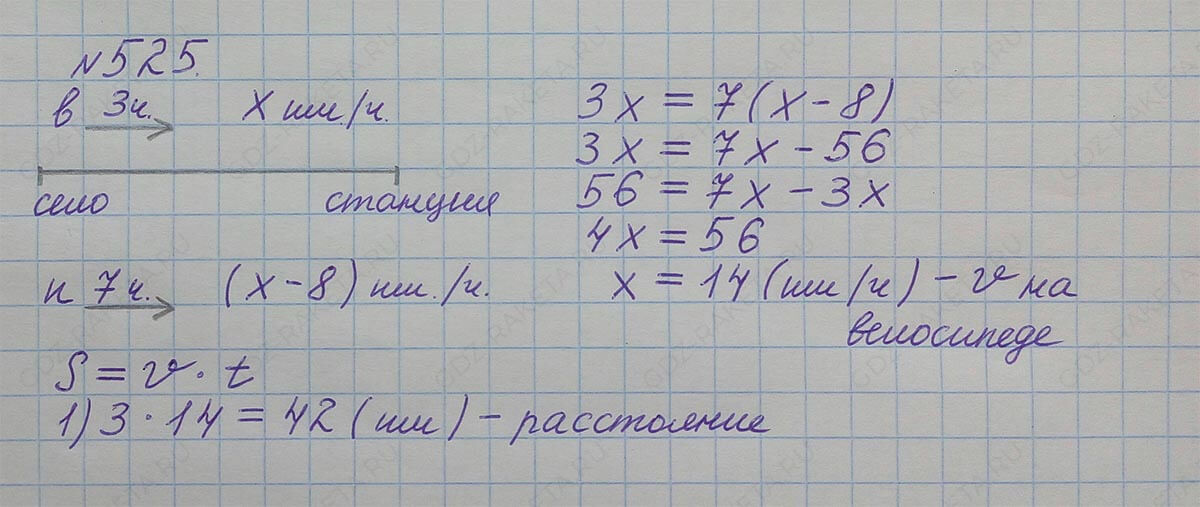 №525.
в 3ч. x км./ч.
село станция
п 7ч. (x-8) км./ч.
S = v · t
1) 3 · 14 = 42 (км) - расстояние
3x = 7(x-8)
3x = 7x - 56
56 = 7x - 3x
4x = 56
x = 14 (км/ч) - v на
велосипеде
GDZ-RAKETA.RU